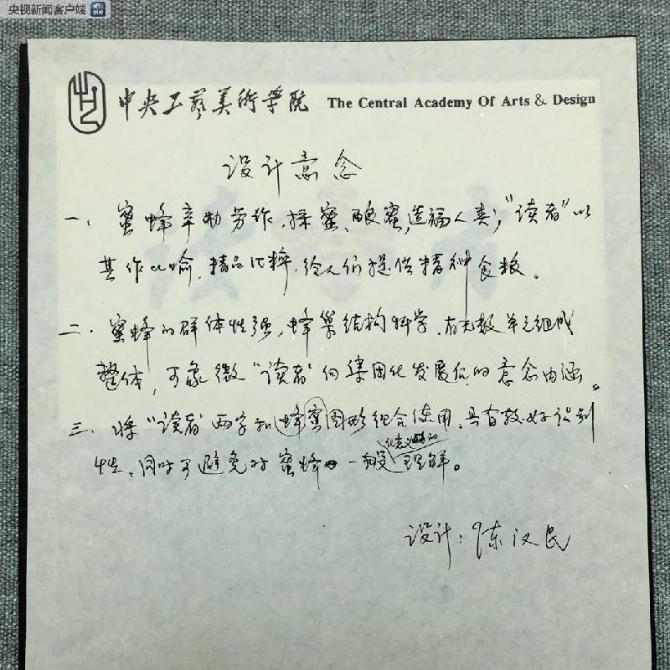 央视新闻客户端
中央工艺美术学院 The Central Academy Of Arts & Design
设计意念
一、蜜蜂辛勤劳作,採蜜、酿蜜,造福人类;"读者"以
其作比喻,精品比粹,给人们提供精神食粮。
二、蜜蜂的群体性强,蜂巢结构科学,有无数单元组成
整体,可象徵"读者"向集团化发展 的意念内涵。
三、将"读者"两字和蜂蜜图形组合使用,具有较好识别
性,同时可避免对蜜蜂一般化意义的理解。
设计:陈汉民